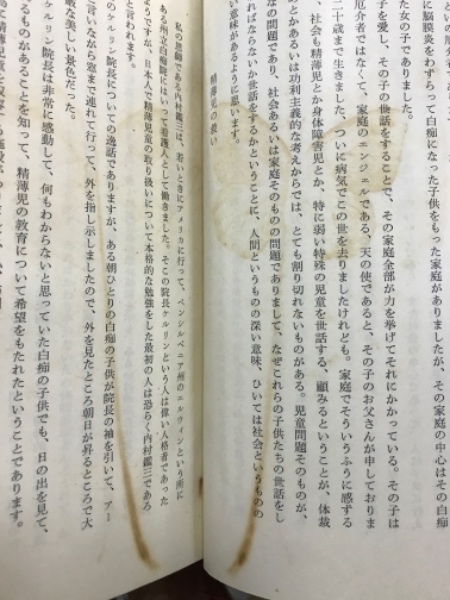 に脳膜炎をわずらって白痴になった子供をもった家庭がありましたが、その家庭の中心はその白痴
た女の子でありました。
子を愛し、その子の世話をすることで、その家庭全部が力を挙げてそれにかかっている。その子は
厄介者ではなくて、家庭のエンジェルである、天の使であると、その子のお父さんが申しておりま
二十歳まで生きました。ついに病気でこの世を去りましたけれども。家庭でそういうふうに感ずる
、社会も精薄児とか身体障害児とか、特に弱い特殊の児童を世話する、顧みるということが、体裁
とかあるいは功利主義的な考えからでは、とても割り切れないものがある。児童問題そのものが、
な問題であり、社会あるいは家庭そのものの問題でありまして、なぜこれらの子供たちの世話をし
ればならないか世話をするかということに、人間というものの深い意味、ひいては社会というものの
い意味があるように思います。
精薄児の救い
私の恩師である内村鑑三は、若いときにアメリカに行って、ペンシルベニア州のエルウィンという所に
ある州立白痴院にはいって看護人として働きました。そこの院長ケルリンという人は偉い人格者であった
ようですが、日本人で精薄児童の取り扱いについて本格的な勉強をした最初の人は恐らく内村鑑三である
と言われます。
のケルリン院長についての逸話でありますが、ある朝ひとりの白痴の子供が院長の袖を引いて、アー
と言いながら窓まで連れて行って、外を指し示しましたので、外を見たところ朝日が昇るところで大
敵な美しい景色だった。
ケルリン院長は非常に感動して、何もわからないと思っていた白痴の子供でも、日の出を見て、
るものがあることを知って、精薄児の教育について希望をもたれたということであります。